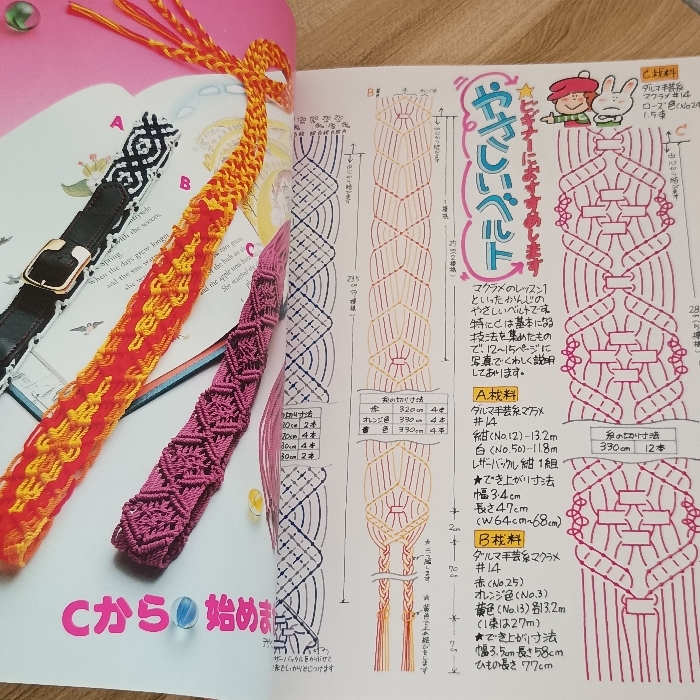 A
B
C
Cから
始めま
B
やさしいベルト
★ビギナーにおすすめします
マクラメのレッスン1
といったかんじの
やさしいベルトです。
特にCは基本になる
技法を集めたもの
で、12~15ページに
写真でくわしく説明
してあります。
A材料
ダルマ手芸糸マクラメ
#14
紺(No.12)-13.2m
白(No.50)-11.8m
レザーバックル紺1組
★でき上がり寸法
幅3.4cm
長さ47cm
(W64cm~68cm)
B材料
ダルマ手芸糸マクラメ
#14
赤(No.25)
オレンジ色(No.3)
黄色(No.13)各13.2m
(1束は27m)
★でき上がり寸法
幅3.5cm 長さ58cm
ひもの長さ77cm
C材料
ダルマ手芸糸
マクラメ#14
ローズ色
1.5束
C
糸の切り寸法
赤 320cm 4本
オレンジ色 330cm 4本
黄色 330cm 4本
の切り寸法
2本
4本
4本
2本
糸の切り寸法
330cm 12本
2cm
70cm
7cm